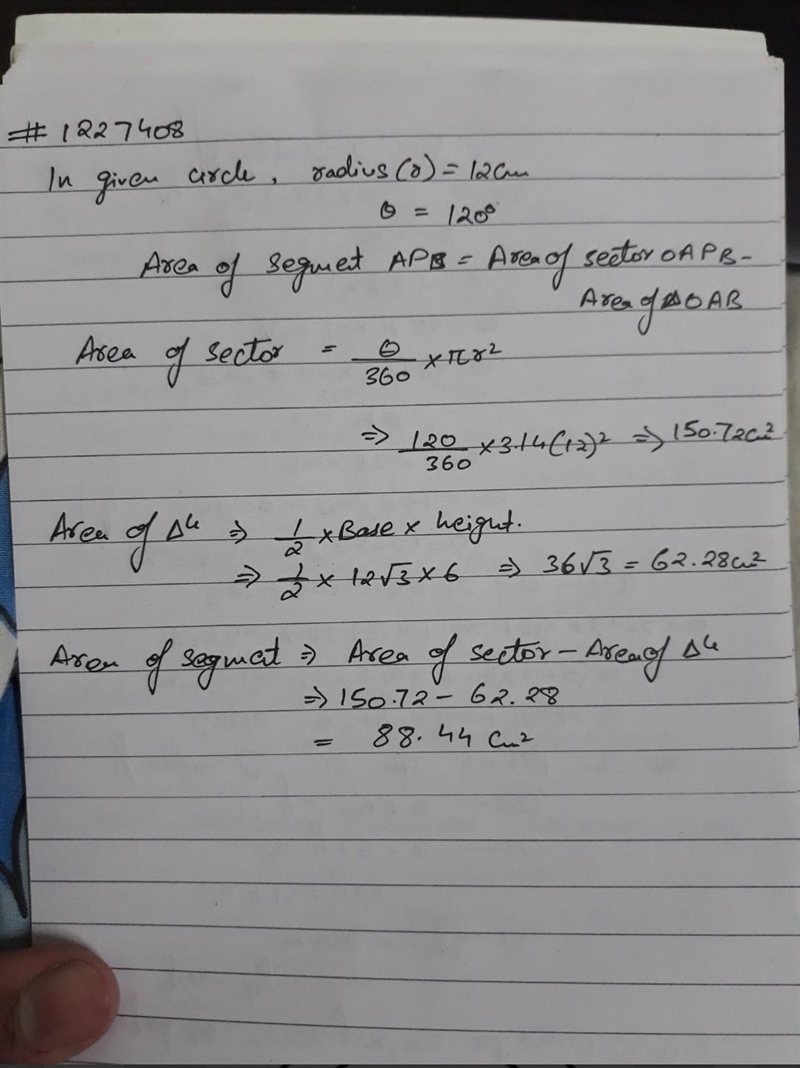 # 1227408
In given circle, radius (r) = 12cm
θ = 120°
Area of segmet APB = Area of sector OAPB -
Area of Δ OAB
Area of sector = θ/360 × πr²
⇒ 120/360 × 3.14(12)² ⇒ 150.72cm²
Area of Δle ⇒ 1/2 × Base × height.
⇒ 1/2 × 12√3 × 6 ⇒ 36√3 = 62.28cm²
Area of segmet ⇒ Area of sector - Area of Δle
⇒ 150.72 - 62.28
= 88.44 cm²